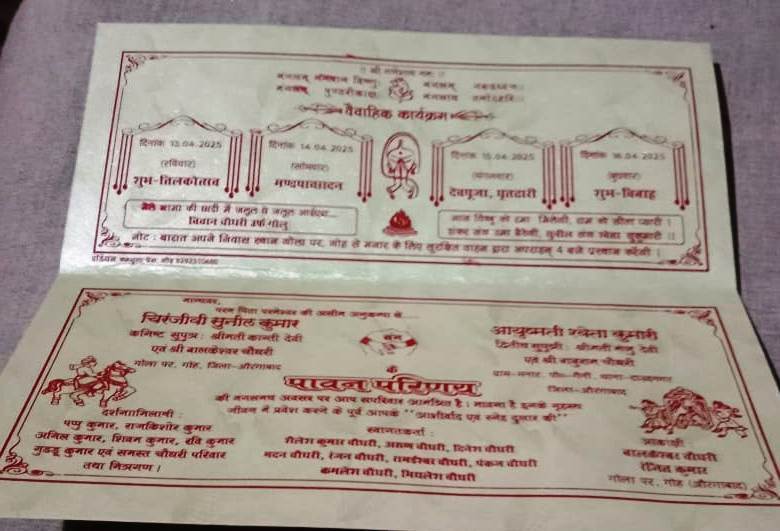 ।। श्री गणेशाय नमः ।।
मंगलम् भगवान विष्णुः मंगलम् गरुडध्वजः
मंगलम् पुण्डरीकाक्षः मंगलाय तनोहरिः
वैवाहिक कार्यक्रम
दिनांक 13.04.2025
(रविवार)
शुभ-तिलकोत्सव
दिनांक 14.04.2025
(सोमवार)
मण्डपाच्छादन
दिनांक 15.04.2025
(मंगलवार)
देवपूजा, घृतढारी
दिनांक 16.04.2025
(बुधवार)
शुभ-विवाह
मेले मामा की शादी में जलूल से जलूल आईएगा...
विवान चौधरी उर्फ गोलु
नोट : बारात अपने निवास स्थान गोला पर, गोह से मनार के लिए सुरक्षित वाहन द्वारा अपराह्न 4 बजे प्रस्थान करेगी।
मान्यवर,
परम पिता परमेश्वर की असीम अनुकम्पा से
चिरंजीवी सुनील कुमार
कनिष्ठ सुपुत्र : श्रीमती कान्ती देवी
एवं श्री बालकेश्वर चौधरी
गोला पर, गोह, जिला-औरंगाबाद
संग
आयुष्मती श्वेता कुमारी
द्वितीय सुपुत्री : श्रीमती मंजु देवी
एवं श्री बाबुराम चौधरी
जिला-औरंगाबाद
के
पावन परिणय
की मंगलमय अवसर पर आप सपरिवार आमंत्रित है।
जीवन में प्रवेश करने के पूर्व आपके "आशीर्वाद एवं स्नेह दुलार की"
दर्शनाभिलाषी :
पप्पु कुमार, राजकिशोर कुमार
अनिल कुमार, शिवम कुमार, रवि कुमार
गुड्डु कुमार एवं समस्त चौधरी परिवार
तथा मित्रगण।
स्वागतकर्ता :
शैलेश कुमार चौधरी, अरुण चौधरी, दिनेश चौधरी
मदन चौधरी, रंजन चौधरी, रामईश्वर चौधरी, पंकज चौधरी
कमलेश चौधरी, मिथलेश चौधरी
आकांक्षी
बालकेश्वर चौधरी
रंजित कुमार
गोला पर, गोह (औरंगाबाद)